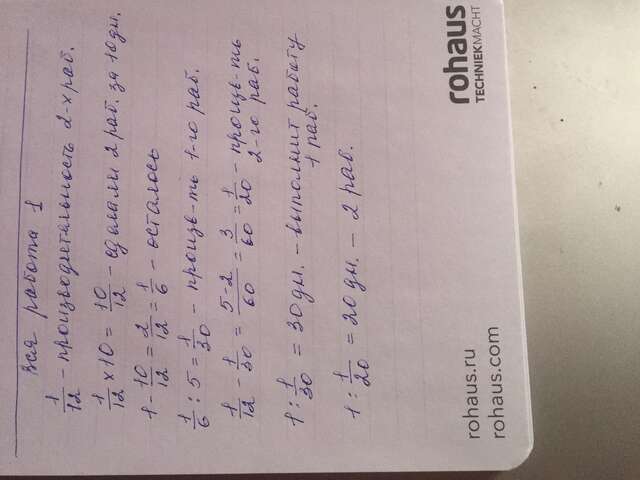 Вся работа 1
1/12 – производительность 2-х раб.
1/12 × 10 = 10/12 – сделали 2 раб. за 10 дн.
1 - 10/12 = 2/12 = 1/6 – осталось
1/6 : 5 = 1/30 – произв-ть 1-го раб.
1/12 - 1/30 = 5-2/60 = 3/60 = 1/20 – произв-ть
2-го раб.
1 : 1/30 = 30 дн. – выполнит работу
1 раб.
1 : 1/20 = 20 дн. – 2 раб.
rohaus
TECHNIEKMACHT
rohaus.ru
rohaus.com